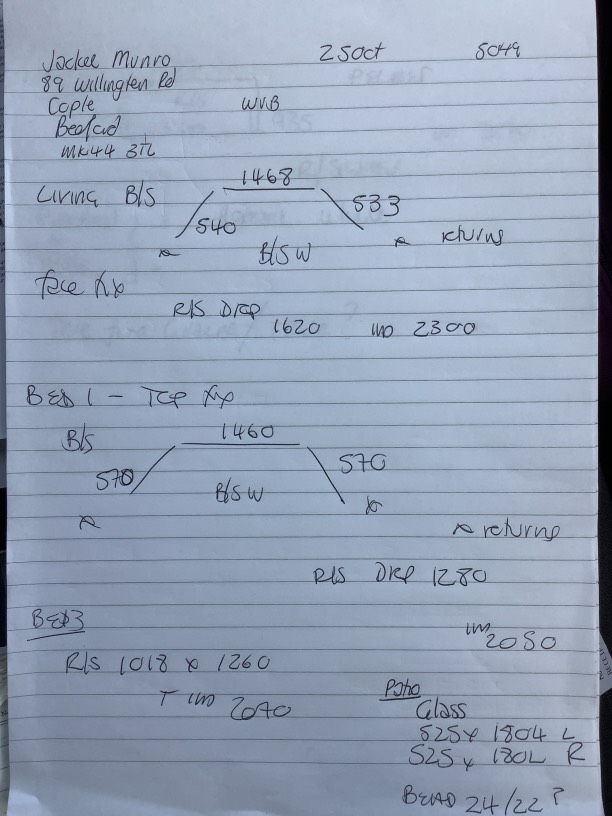 Jackee Munro 25 Oct 5049
89 Willington Rd
Cople WVB
Bedford
MK44 3TL
Living B/S 1468
540 533
B/S W * returns
face fix
R/S Drop
1620 UW 2300
BED 1 - Top fix
B/S 1460
570 570
B/S W
* returns
R/S Drop 1280
BED3
UW 2080
R/S 1018 x 1260
T UW 2090
Patio
Glass
525 x 1804 L
525 x 1804 R
BEAD 24/22 ?